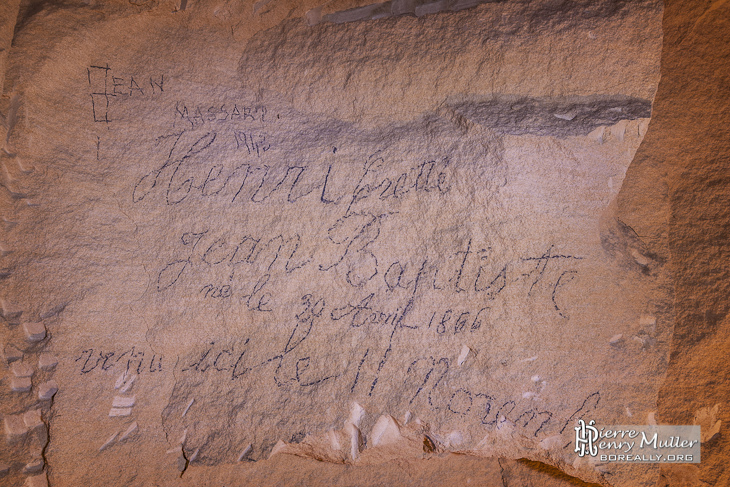 JEAN
MASSART.
Henri
Jean Baptiste
né le Avril 1866
venu ici le 11 Novemb
Pierre
Henry Muller
BOREALLY.ORG